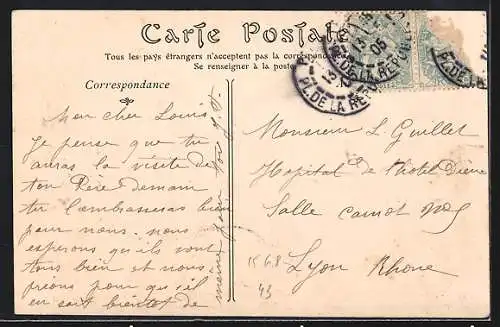 Carte Postale
Tous les pays étrangers n'acceptent pas la correspondance
Se renseigner à la poste
Correspondance
Mon cher Louis
Je pense que tu
auras la visite de
ton Père demain
tu l'embrasseras bien
pour nous. nous
esperons qu'ils vont
tous bien et nous
prions pour qu'il
en soit bientot de
meme pour toi
PL. DE LA REPUB
05
PL. DE LA RE
Monsieur L. Guillet
Hopital de l'hotel Dieu
Salle carnot
Lyon Rhone
43